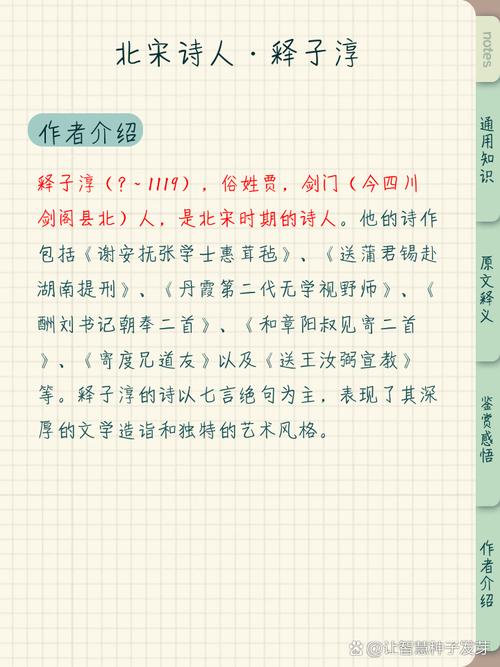 北宋诗人·释子淳
作者介绍
释子淳（?~1119），俗姓贾，剑门（今四川
剑阁县北）人，是北宋时期的诗人。他的诗作
包括《谢安抚张学士惠茸毡》、《送蒲君锡赴
湖南提刑》、《丹霞第二代无学视野师》、《
酬刘书记朝奉二首》、《和章阳叔见寄二首
》、《寄度兄道友》以及《送王汝弼宣教》
等。释子淳的诗以七言绝句为主，表现了其深
厚的文学造诣和独特的艺术风格。
notes
通用知识
原文释义
鉴赏感悟
作者介绍
@让智慧种子发芽